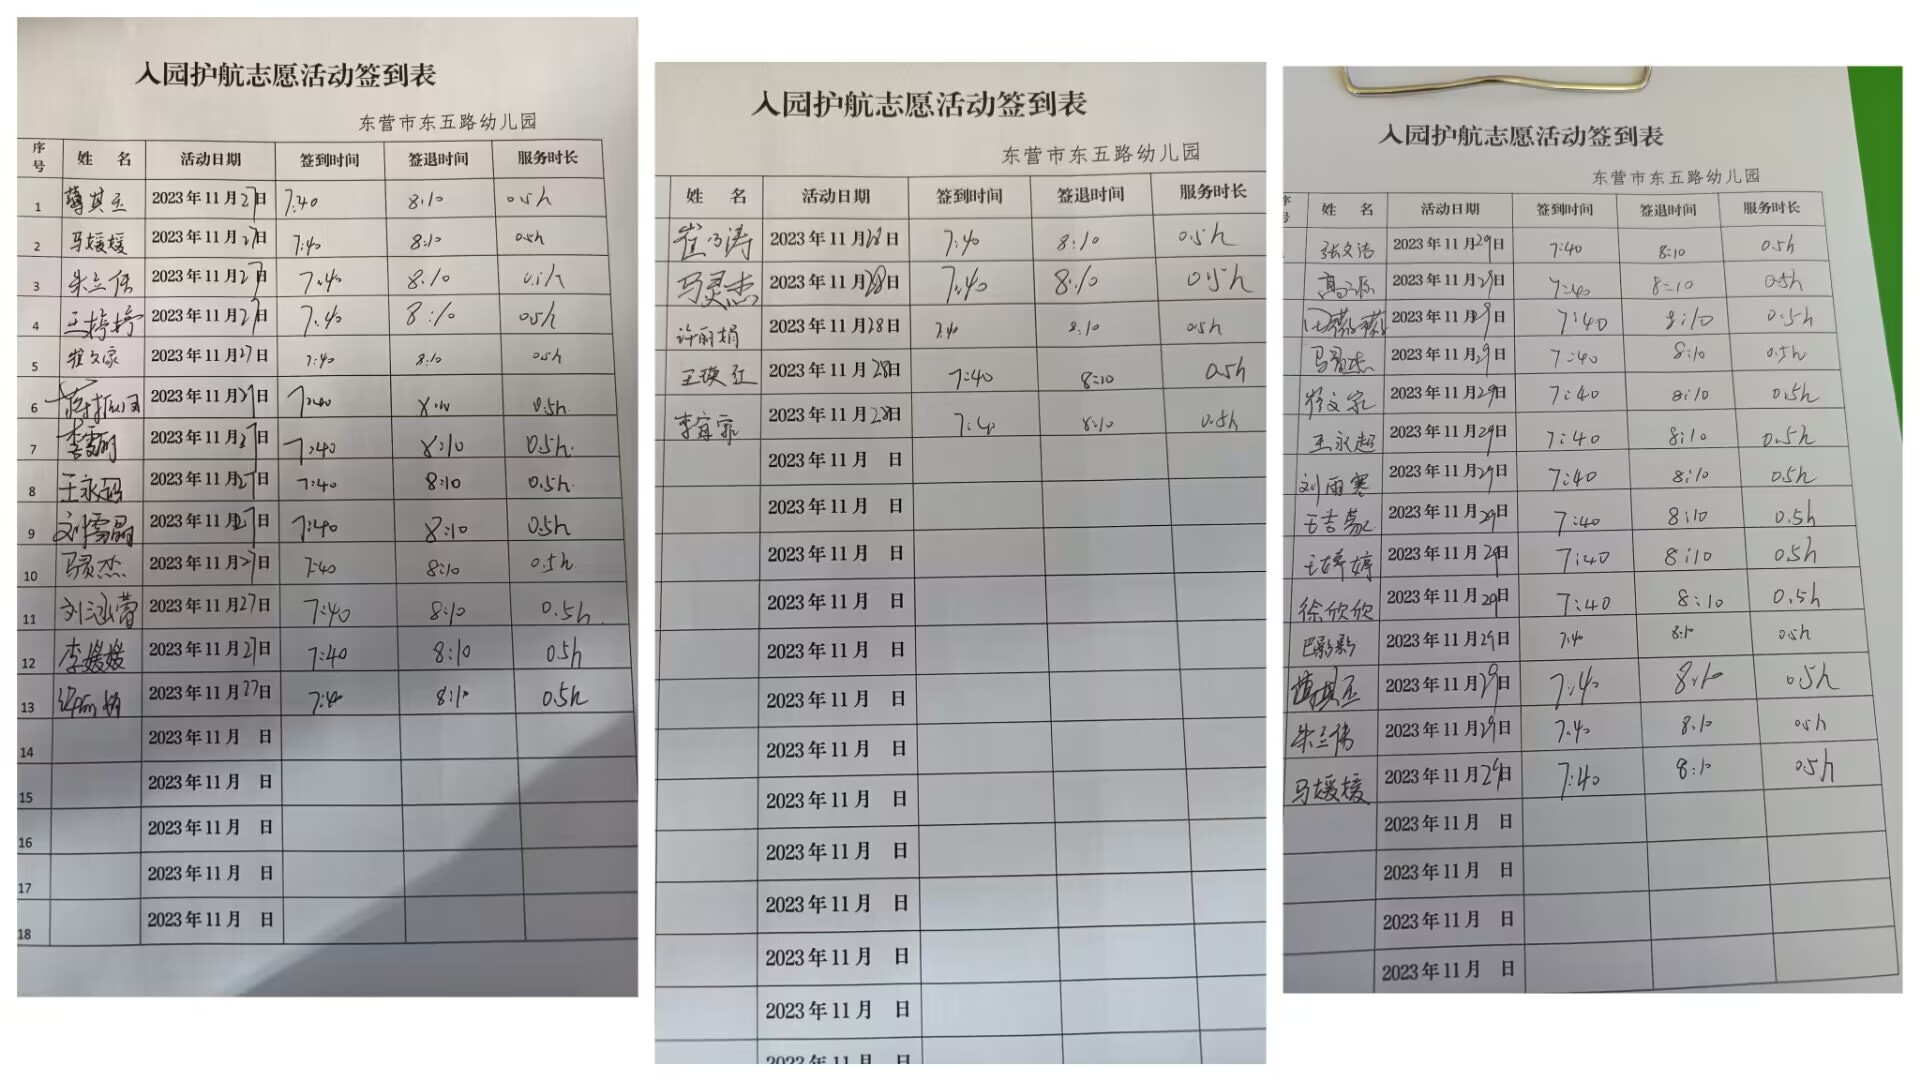 入园护航志愿活动签到表
东营市东五路幼儿园
序号 姓 名 活动日期 签到时间 签退时间 服务时长
1 薄其玉 2023年11月27日 7:40 8:10 0.5h
2 马媛媛 2023年11月27日 7:40 8:10 0.5h
3 朱立伟 2023年11月27日 7:40 8:10
4 王婷婷 2023年11月27日 7:40 8:10 0.5h
5 崔文家 2023年11月27日 7:40 8:10 0.5h
6 2023年11月27日 7:40 8:10 0.5h
7 2023年11月27日 7:40 8:10 0.5h
8 王永超 2023年11月27日 7:40 8:10 0.5h
9 刘雪晶 2023年11月27日 7:40 8:10 0.5h
10 马灵杰 2023年11月27日 7:40 8:10 0.5h
11 刘涵蕾 2023年11月27日 7:40 8:10 0.5h
12 李媛媛 2023年11月27日 7:40 8:10 0.5h
13 许丽娟 2023年11月27日 7:40 8:10 0.5h
14 2023年11月 日
15 2023年11月 日
16 2023年11月 日
17 2023年11月 日
18 2023年11月 日
入园护航志愿活动签到表
东营市东五路幼儿园
姓 名 活动日期 签到时间 签退时间 服务时长
2023年11月28日 7:40 8:10 0.5h
马灵杰 2023年11月28日 7:40 8:10 0.5h
许丽娟 2023年11月28日 7:40 8:10 0.5h
王瑛红 2023年11月28日 7:40 8:10 0.5h
2023年11月28日 7:40 8:10 0.5h
2023年11月 日
2023年11月 日
2023年11月 日
2023年11月 日
2023年11月 日
2023年11月 日
2023年11月 日
2023年11月 日
2023年11月 日
2023年11月 日
2023年11月 日
2023年11月 日
2023年11月 日
入园护航志愿活动签到表
东营市东五路幼儿园
姓 名 活动日期 签到时间 签退时间 服务时长
张文洁 2023年11月29日 7:40 8:10 0.5h
2023年11月29日 7:40 8:10 0.5h
2023年11月29日 7:40 8:10 0.5h
马灵杰 2023年11月29日 7:40 8:10 0.5h
崔文家 2023年11月29日 7:40 8:10 0.5h
王永超 2023年11月29日 7:40 8:10 0.5h
刘雨寒 2023年11月29日 7:40 8:10 0.5h
2023年11月29日 7:40 8:10 0.5h
王婷婷 2023年11月29日 7:40 8:10 0.5h
徐欣欣 2023年11月29日 7:40 8:10 0.5h
巴影影 2023年11月29日 7:40 8:10 0.5h
薄其玉 2023年11月29日 7:40 8:10 0.5h
朱立伟 2023年11月29日 7:40 8:10 0.5h
马媛媛 2023年11月29日 7:40 8:10 0.5h
2023年11月 日
2023年11月 日
2023年11月 日
2023年11月 日